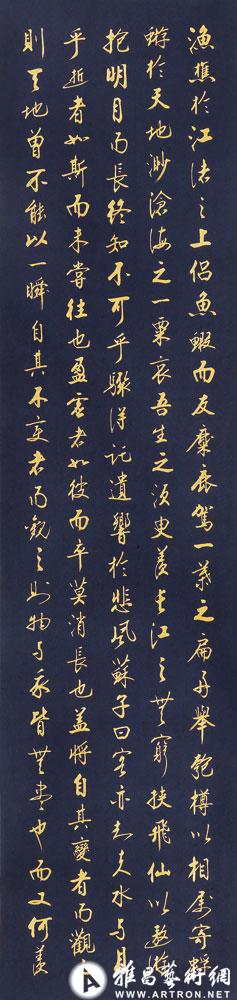 漁樵於江渚之上侶魚鰕而友麋鹿駕一葉之扁舟舉匏樽以相屬寄蜉
蝣於天地渺滄海之一粟哀吾生之須臾羨長江之無窮挾飛仙以遨遊
抱明月而長終知不可乎驟得託遺響於悲風蘇子曰客亦知夫水与月
乎逝者如斯而未嘗往也盈虛者如彼而卒莫消長也蓋將自其變者而觀之
則天地曾不能以一瞬自其不變者而觀之則物与我皆無盡也而又何羨
雅昌藝術網
WWW.ARTRON.NET